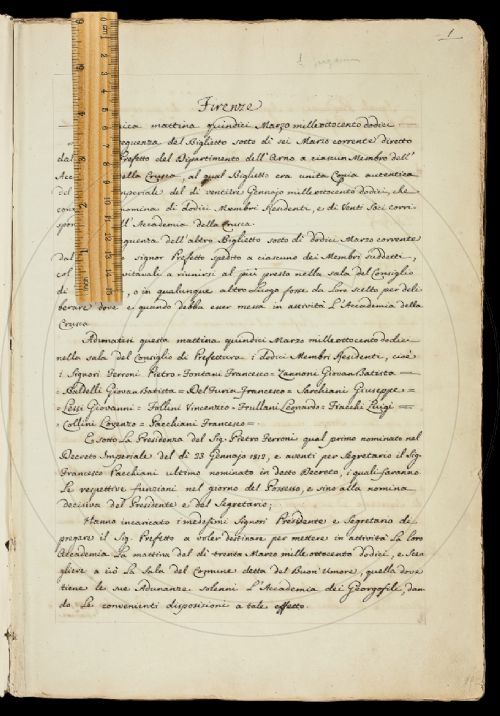 1
Firenze
nica mattina quindici Marzo mille ottocento dodici
eguenza del Biglietto sotto di sei Marzo corrente diretto
dal Prefetto del Dipartimento dell'Arno a ciascun Membro dell'
Acc ella Crusca, al qual Biglietto era unita Copia autentica
del mperiale del di ventitre Gennajo mille ottocento dodici, che
nomina di dodici Membri Residenti, e di Venti Soci corri-
spon ll'Accademia della Crusca.
guenza dell'altro Biglietto sotto di dodici Marzo corrente
dal signor Prefetto spedito a ciascuno dei Membri suddetti,
col vitavali a riunirsi al più presto nella sala del Consiglio
di , o in qualunque altro luogo fosse da Loro scelto per deli-
berare dove e quando debba esser messa in attività L'Accademia della
Crusca
Adunatisi questa mattina quindici Marzo mille ottocento dodici
nella sala del Consiglio di Prefettura i dodici Membri Residenti, cioè
i Signori Ferroni Pietro = Fontani Francesco = Zannoni Giovan Batista =
= Baldelli Giovan Batista = Del Furia Francesco = Sarchiani Giuseppe =
= Lessi Giovanni = Follini Vincenzio = Frullani Leonardo = Fiacchi Luigi =
= Collini Lorenzo = Pacchiani Francesco =
E sotto La Presidenza del Sig. Pietro Ferroni qual primo nominato nel
Decreto Imperiale del di 23 Gennajo 1812, e aventi per Segretario il Sig.
Francesco Pacchiani ultimo nominato in detto Decreto, i quali faranno
Le respettive funzioni nel giorno del Possesso, e sino alla nomina
decisiva del Presidente e del Segretario;
Hanno incaricato i medesimi Signori Presidente e Segretario di
pregare il Sig. Prefetto a voler destinare per mettere in attività La Loro
Accademia La mattina del di trenta Marzo mille ottocento dodici, e sce-
gliere a ciò La Sala del Comune detta del Buon'Umore, quella dove
tiene le sue Adunanze solenni L'Accademia dei Georgofili, dan-
do Le convenienti disposizioni a tale effetto.